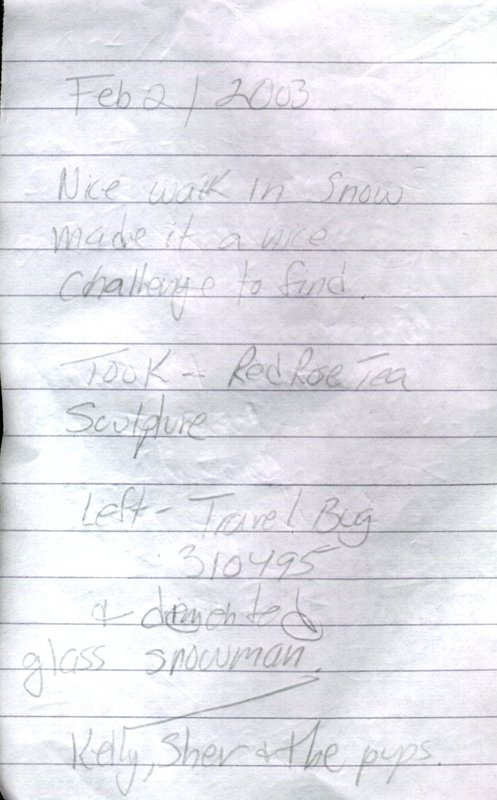 Feb 2/2003
Nice walk in snow
made it a nice
challenge to find.
Took - Red Rose Tea
Sculpture
Left - Travel Bug
310495
& demented
glass snowman.
Kelly, Sher & the pups.